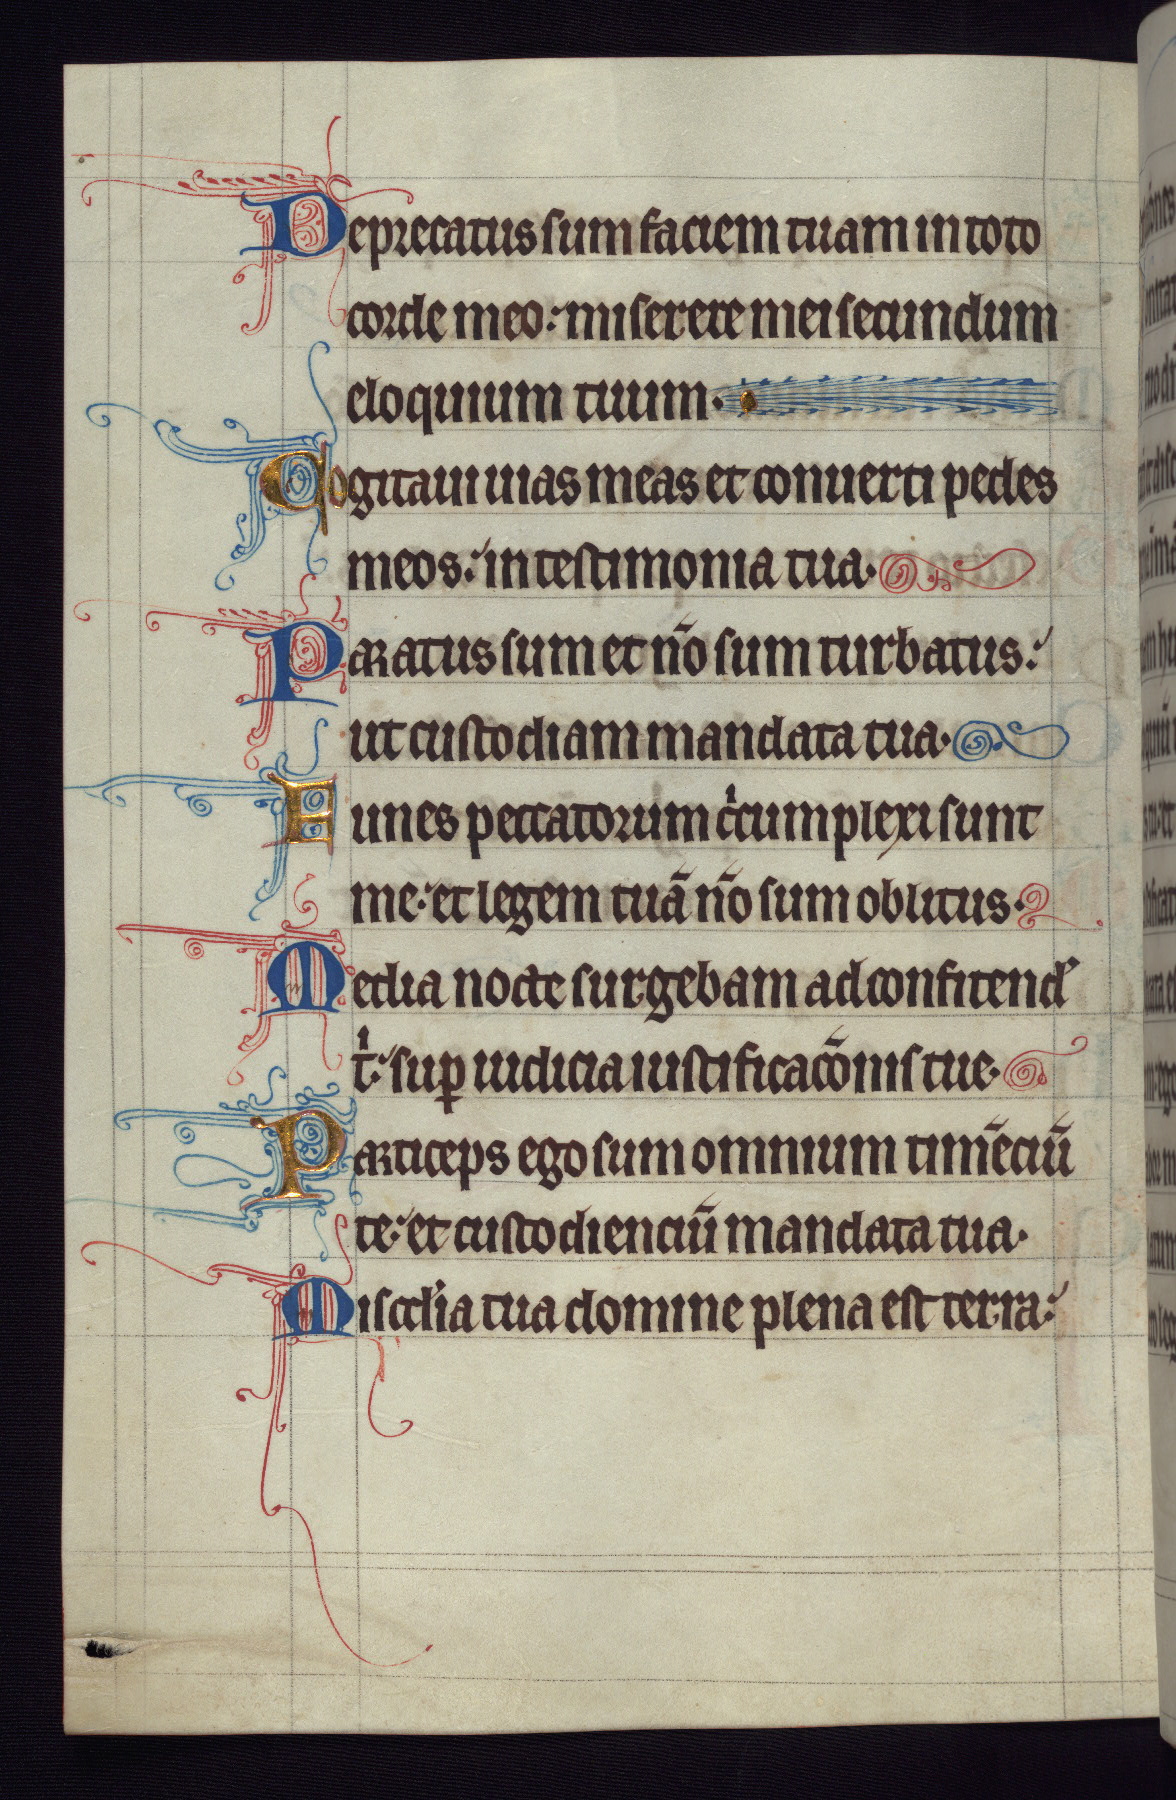 Deprecatus sum faciem tuam in toto
corde meo: miserere mei secundum
eloquium tuum.
Cogitaui uias meas et conuerti pedes
meos: in testimonia tua.
Paratus sum et nõ sum turbatus:
ut custodiam mandata tua.
Funes peccatorum cͥcumplexi sunt
me: et legem tuã nõ sum oblitus.
Media nocte surgebam ad confitend'
tͥ: suꝑ iudicia iustificacõnis tue.
Particeps ego sum omnium timẽciũ
te: et custodienciũ mandata tua.
Misc̄dia tua domine plena est terra: